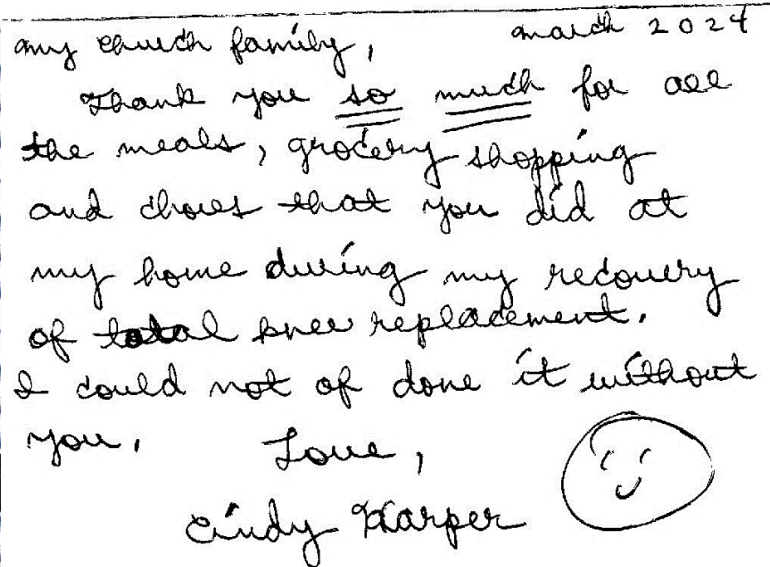 my church family, march 2024
Thank you so much for all
the meals, grocery shopping
and chores that you did at
my home during my recovery
of total knee replacement.
I could not of done it without
you. Love,
Cindy Harper